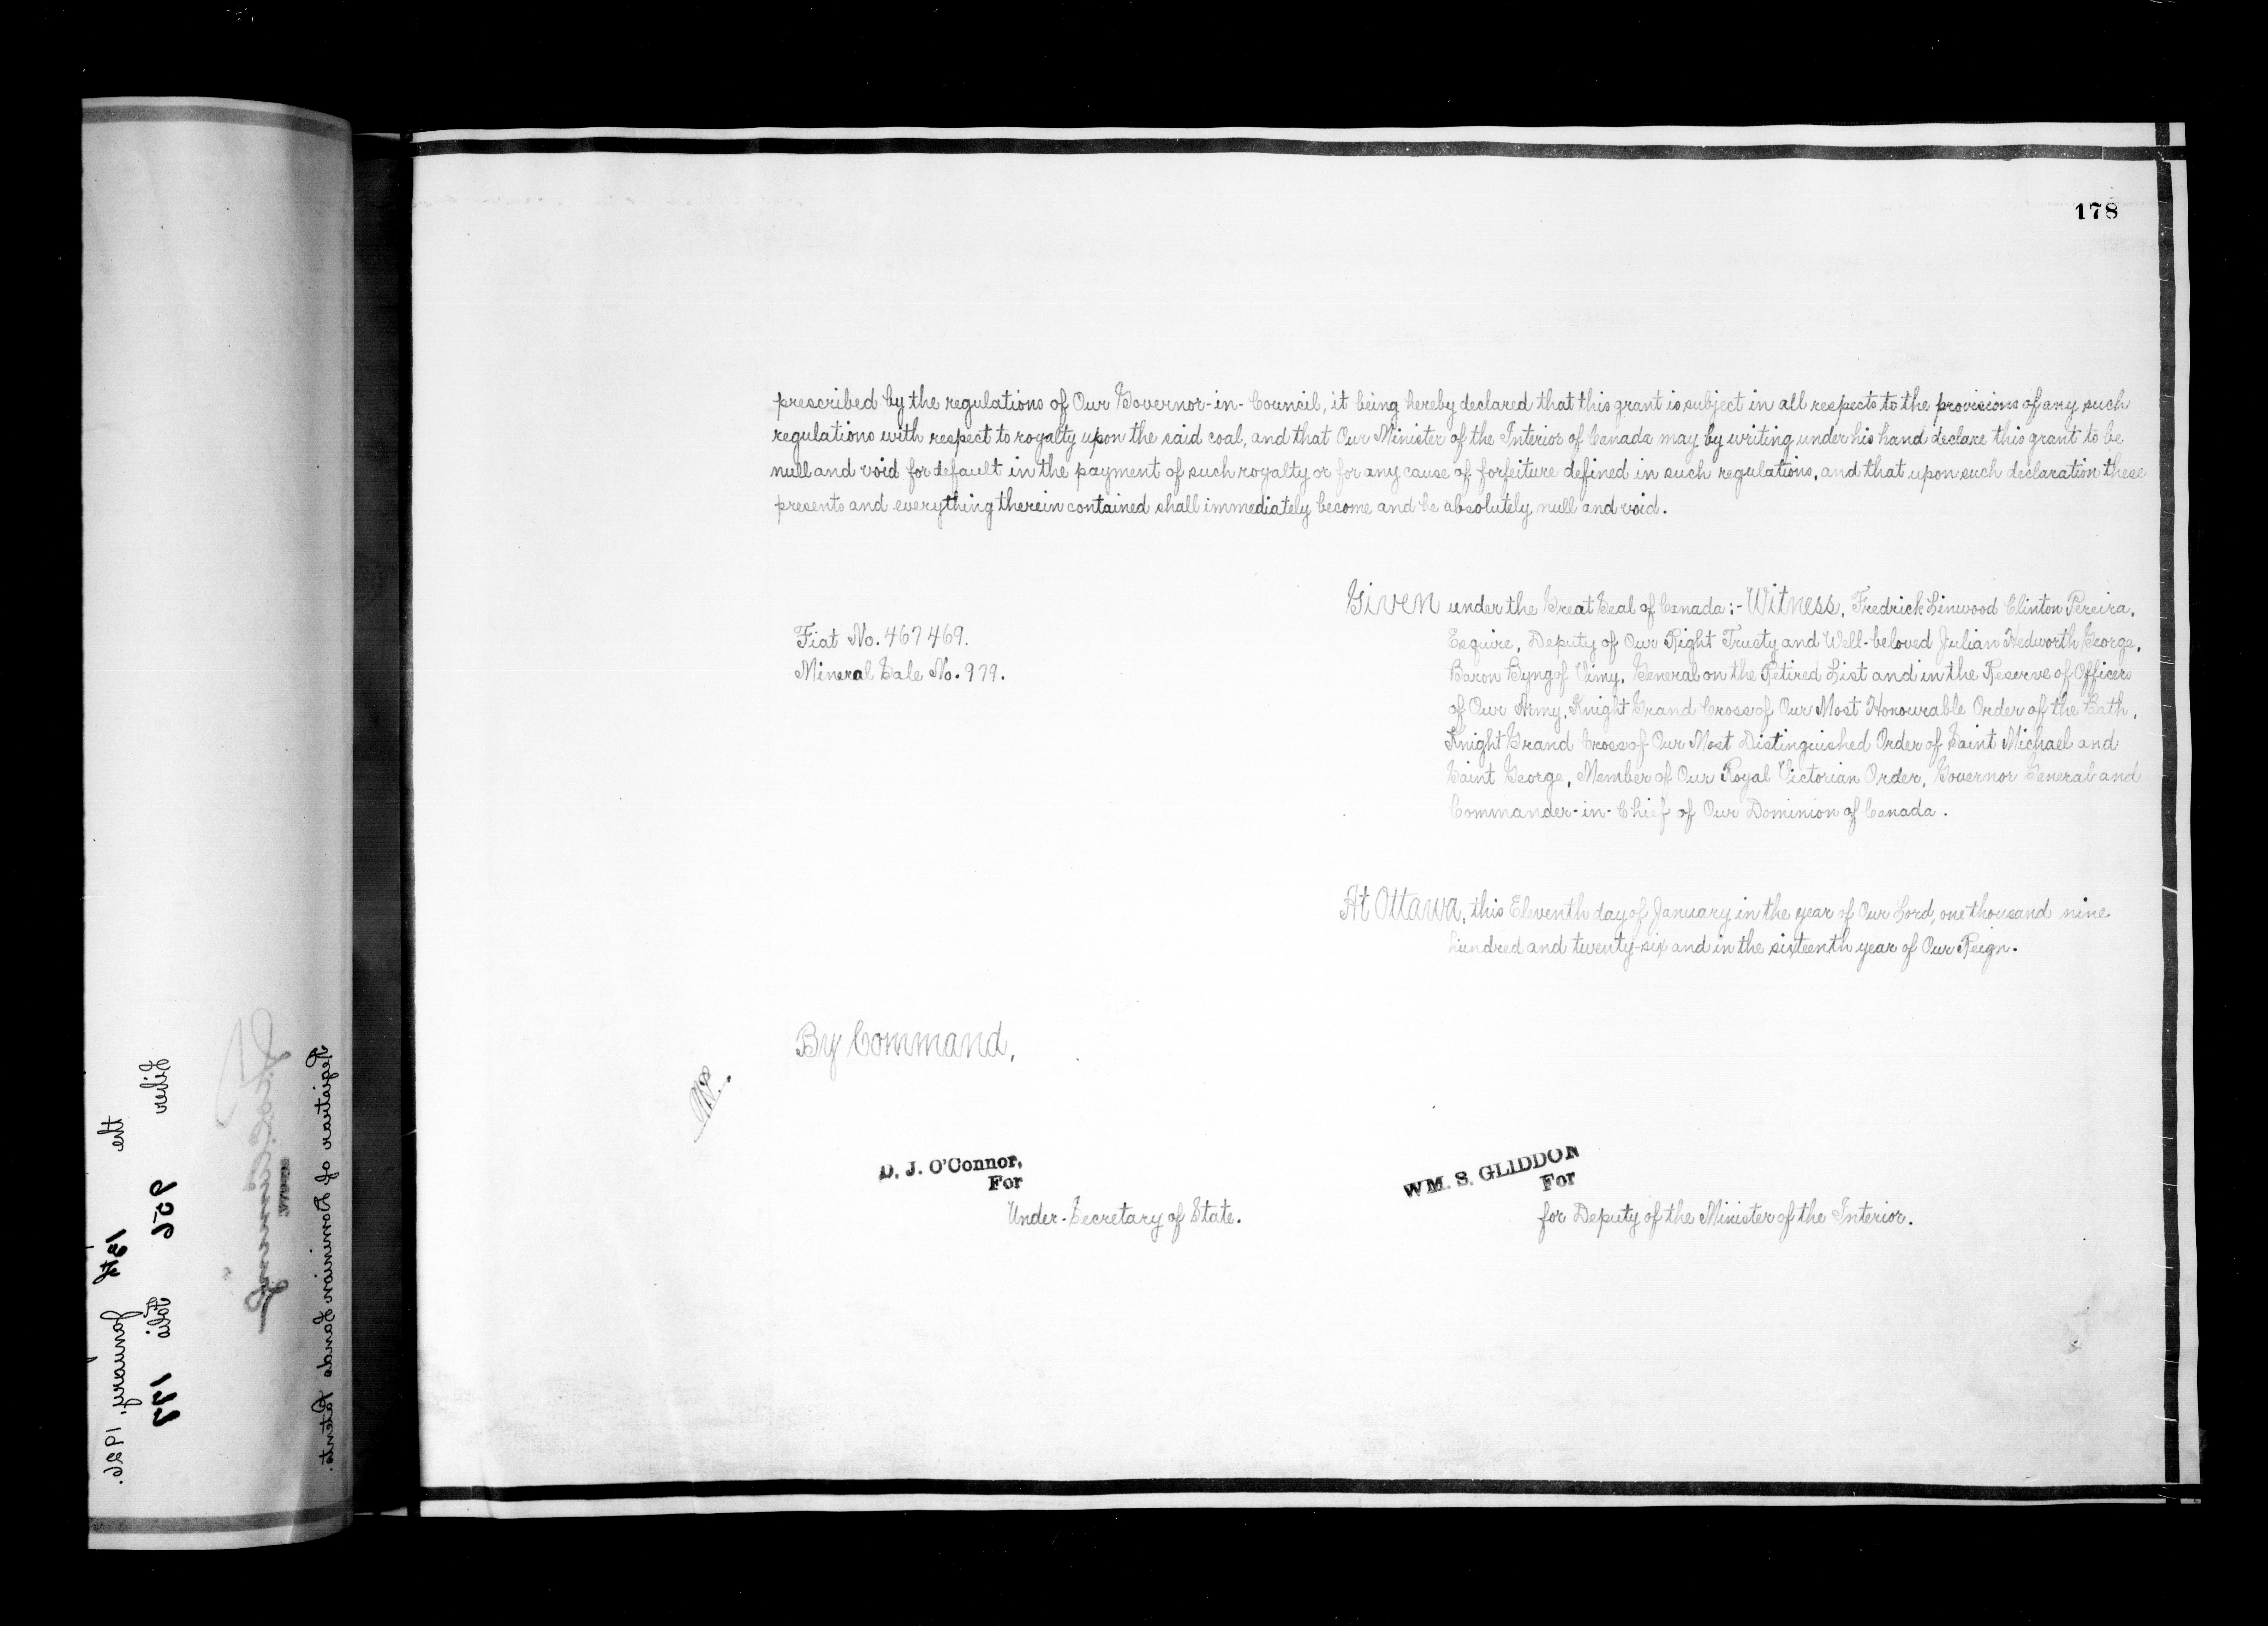 178
prescribed by the regulations of Our Governor-in-Council, it being hereby declared that this grant is subject in all respects to the provisions of any such
regulations with respect to royalty upon the said coal, and that Our Minister of the Interior of Canada may by writing under his hand declare this grant to be
null and void for default in the payment of such royalty or for any cause of forfeiture defined in such regulations, and that upon such declaration these
presents and everything therein contained shall immediately become and be absolutely null and void.
Given under the Great Seal of Canada:- Witness, Fredrick Linwood Clinton Pereira,
Esquire, Deputy of Our Right Trusty and Well-beloved Julian Hedworth George,
Baron Byng of Vimy, General on the Retired List and in the Reserve of Officers
of Our Army, Knight Grand Cross of Our Most Honourable Order of the Bath,
Knight Grand Cross of Our Most Distinguished Order of Saint Michael and
Saint George, Member of Our Royal Victorian Order, Governor General and
Commander-in-Chief of Our Dominion of Canada.
Fiat No. 467469.
Mineral Sale No. 979.
At Ottawa, this Eleventh day of January in the year of Our Lord, one thousand nine
hundred and twenty-six and in the sixteenth year of Our Reign.
By Command,
D. J. O'Connor,
For
Under-Secretary of State.
WM. S. GLIDDON
For
for Deputy of the Minister of the Interior.
the 15th January, 1926.
Liber 956 Folio 177
Registrar of Dominion Lands Patents.